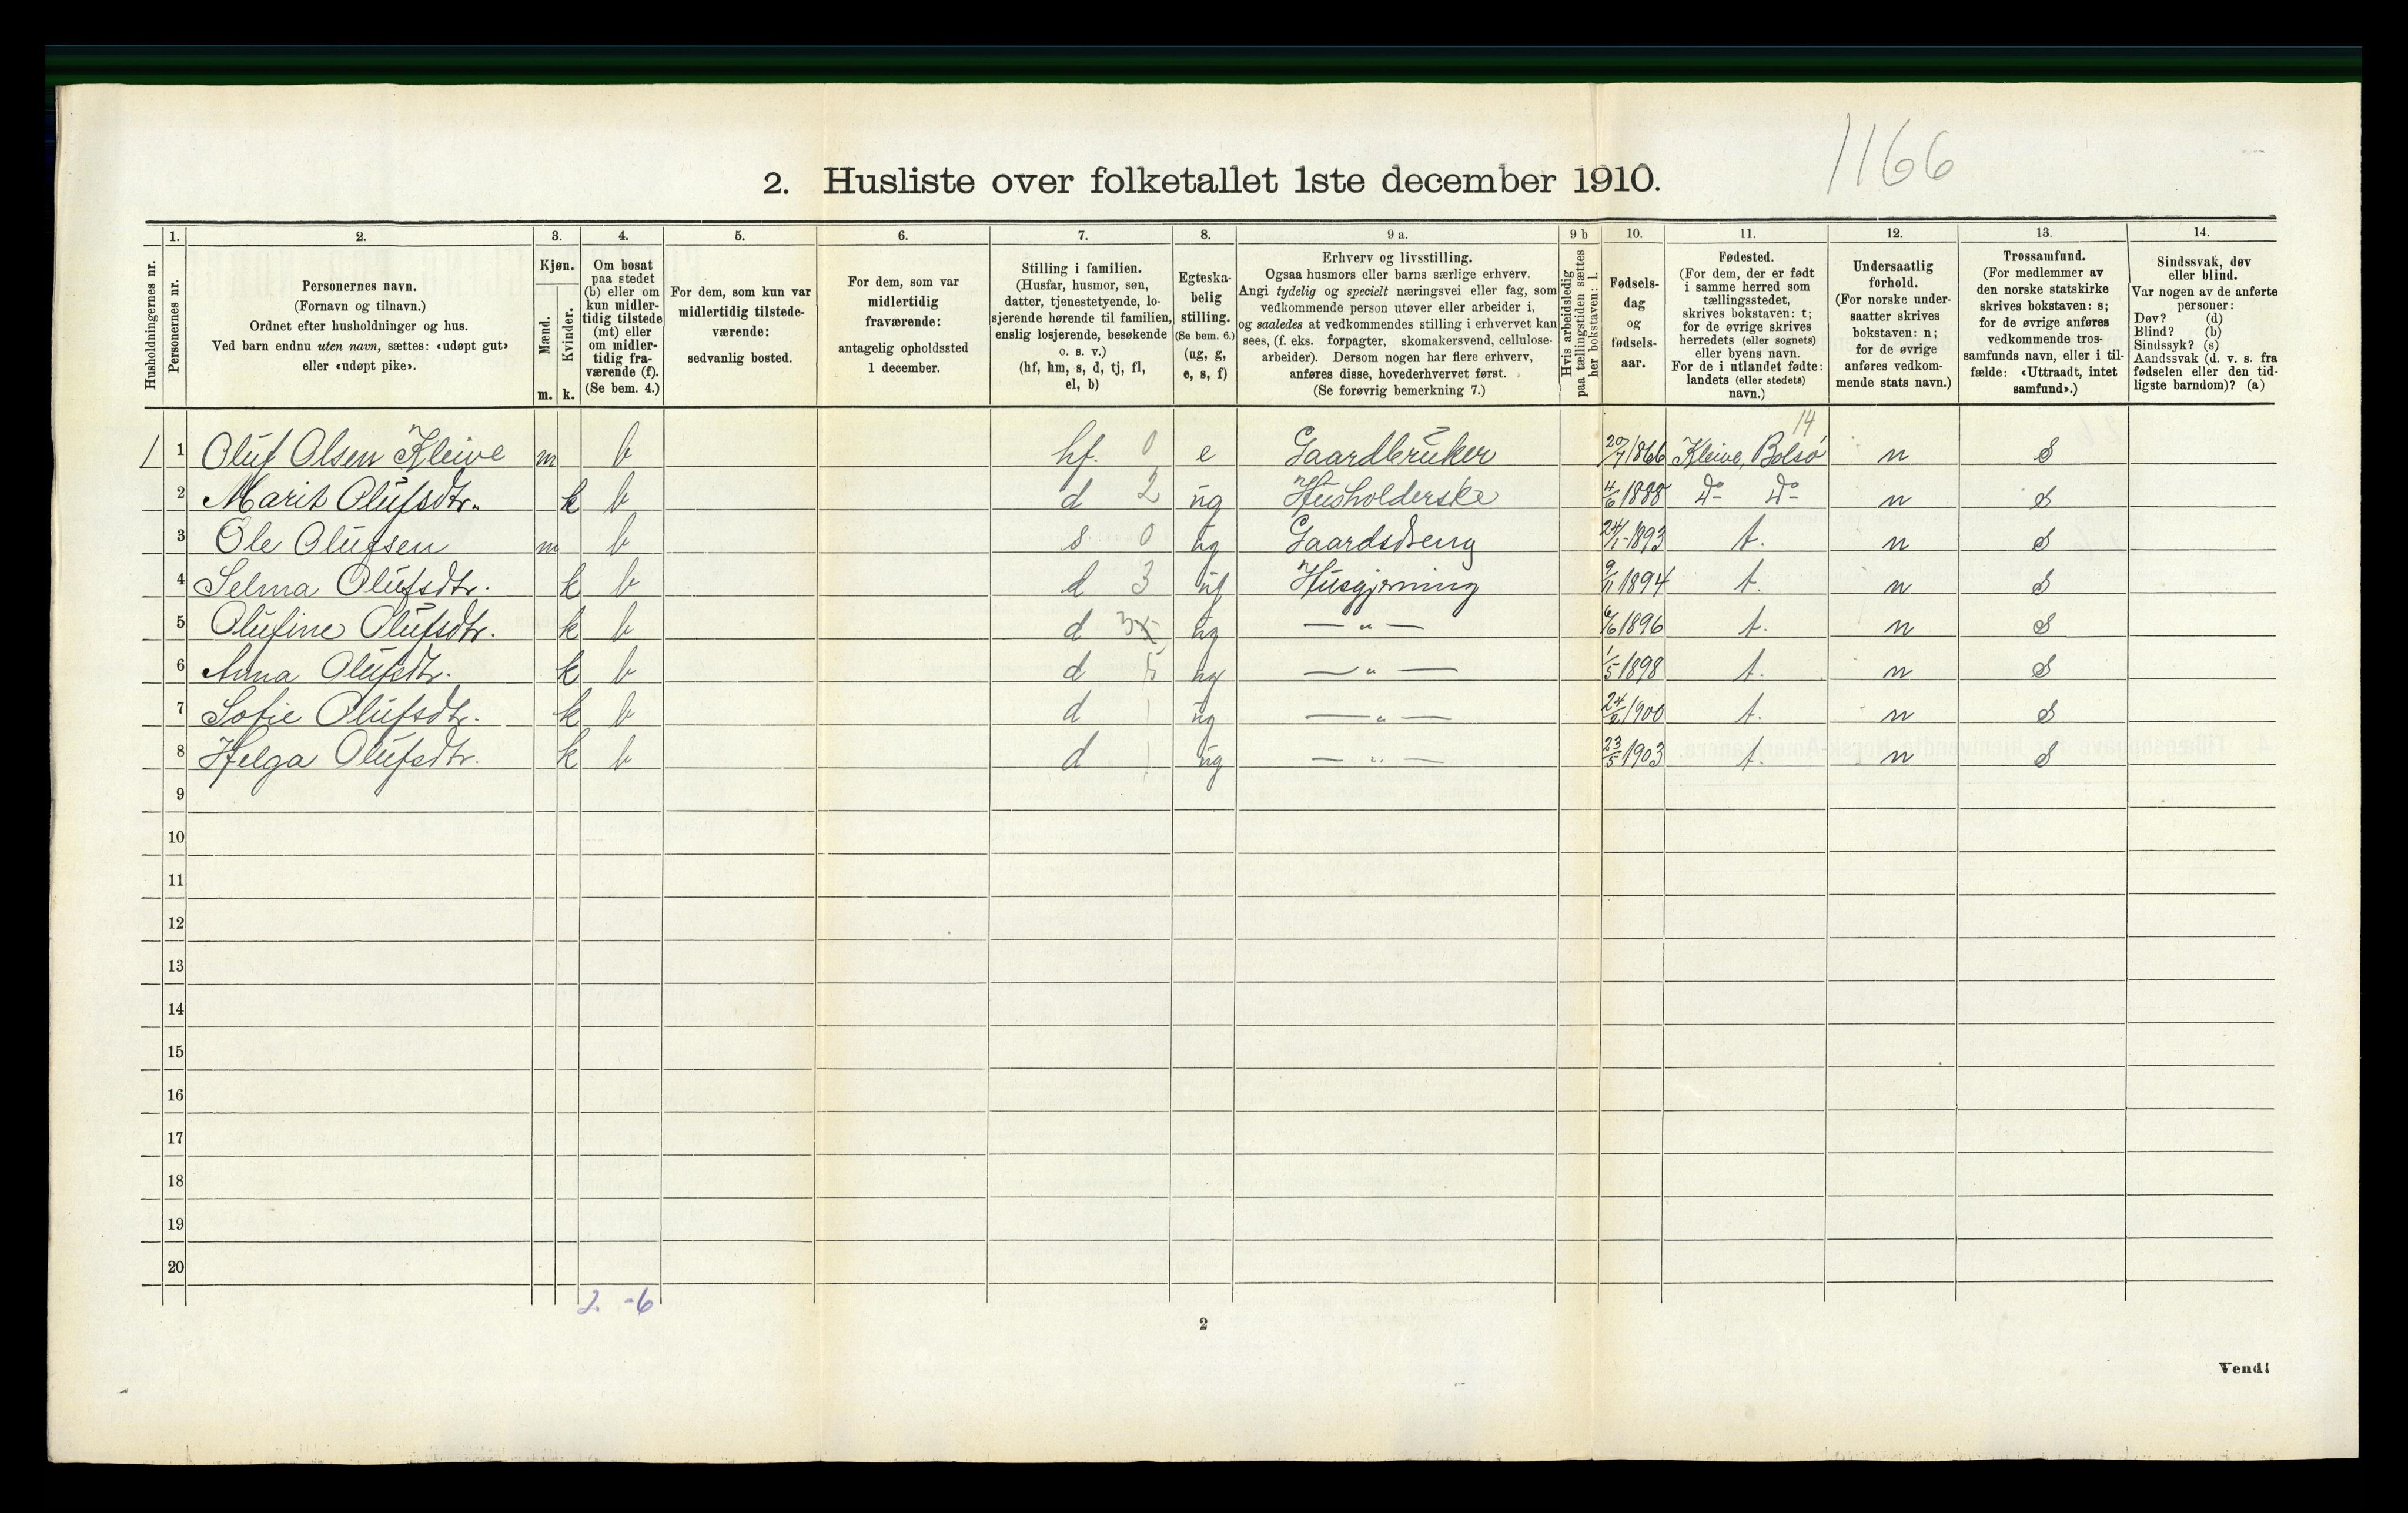 1166
2. Husliste over folketallet 1ste december 1910.
Husholdningernes nr.
1. Personernes nr.
2. Personernes navn.
(Fornavn og tilnavn.)
Ordnet efter husholdninger og hus.
Ved barn endnu uten navn, sættes: «udøpt gut»
eller «udøpt pike».
3. Kjøn.
Mænd. m.
Kvinder. k.
4. Om bosat
paa stedet
(b) eller om
kun midler-
tidig tilstede
(mt) eller
om midler-
tidig fra-
værende (f).
(Se bem. 4.)
5. For dem, som kun var
midlertidig tilstede-
værende:
sedvanlig bosted.
6. For dem, som var
midlertidig
fraværende:
antagelig opholdssted
1 december.
7. Stilling i familien.
(Husfar, husmor, søn,
datter, tjenestetyende, lo-
sjerende hørende til familien,
enslig losjerende, besøkende
o. s. v.)
(hf, hm, s, d, tj, fl,
el, b)
8. Egteska-
belig
stilling.
(Se bem. 6.)
(ug, g,
e, s, f)
9 a. Erhverv og livsstilling.
Ogsaa husmors eller barns særlige erhverv.
Angi tydelig og specielt næringsvei eller fag, som
vedkommende person utøver eller arbeider i,
og saaledes at vedkommendes stilling i erhvervet kan
sees, (f. eks. forpagter, skomakersvend, cellulose-
arbeider). Dersom nogen har flere erhverv,
anføres disse, hovederhvervet først.
(Se forøvrig bemerkning 7.)
9 b Hvis arbeidsledig
paa tællingstiden sættes
her bokstaven: l.
10. Fødsels-
dag
og
fødsels-
aar.
11. Fødested.
(For dem, der er født
i samme herred som
tællingsstedet,
skrives bokstaven: t;
for de øvrige skrives
herredets (eller sognets)
eller byens navn.
For de i utlandet fødte:
landets (eller stedets)
navn.)
12. Undersaatlig
forhold.
(For norske under-
saatter skrives
bokstaven: n;
for de øvrige
anføres vedkom-
mende stats navn.)
13. Trossamfund.
(For medlemmer av
den norske statskirke
skrives bokstaven: s;
for de øvrige anføres
vedkommende tros-
samfunds navn, eller i til-
fælde: «Uttraadt, intet
samfund».)
14. Sindssvak, døv
eller blind.
Var nogen av de anførte
personer:
Døv? (d)
Blind? (b)
Sindssyk? (s)
Aandssvak (d. v. s. fra
fødselen eller den tid-
ligste barndom)? (a)
14
1 1 Oluf Olsen Kleive m b hf. 0 e Gaardbruker 20/7 1866 Kleive, Bolsø n S
2 Marit Olufsdtr. k b d 2 ug Husholderske 4/6 1888 Do Do n S
3 Ole Olufsen m b s 0 ug Gaardsdreng 24/1-1893 t. n S
4 Selma Olufsdtr. k b d 3 ug Husgjerning 9/11 1894 t. n S
5 Olufine Olufsdtr. k b d 3 ug — " — 6/6 1896 t. n S
6 Anna Olufsdtr. k b d 5 ug — " — 1/5 1898 t. n S
7 Sofie Olufsdtr. k b d 1 ug — " — 24/2 1900 t. n S
8 Helga Olufsdtr. k b d 1 ug — " — 23/5 1903 t. n S
9
10
11
12
13
14
15
16
17
18
19
20
2. -6
2
Vend!